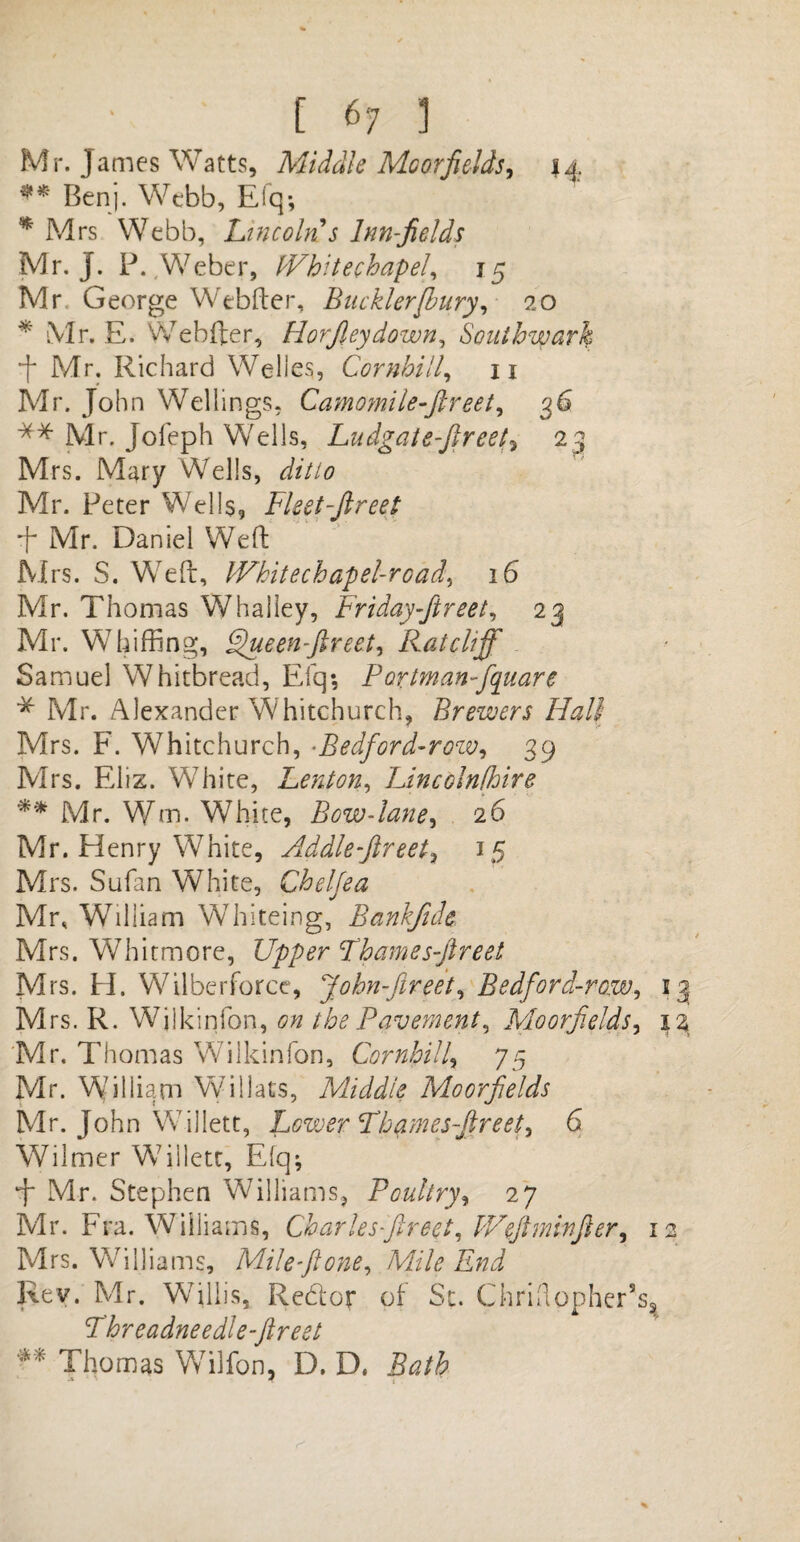 [ 67 ]
Mr. James Watts, Middle Moorfields, 14
** Benj. Webb, Eſq;
* Mrs Webb, Lincoln's Inn-fields
Mr. J. P. Weber, Whitechapel, 15
Mr. George Webſter, Bucklerſbury, 20
* Mr. E. Webſter, Horſleydown, Southwark
† Mr. Richard Welles, Cornhill, 11
Mr. John Wellings, Camomile-ſtreet, 36
** Mr. Joſeph Wells, Ludgate-ſtreet, 23
Mrs. Mary Wells, ditto
Mr. Peter Wells, Fleet-ſtreet
† Mr. Daniel Weſt
Mrs. S. Weſt, Whitechapel-road, 16
Mr. Thomas Whalley, Friday-ſtreet, 23
Mr. Whiffing, Queen-ſtreet, Ratcliff
Samuel Whitbread, Eſq; Portman-ſquare
* Mr. Alexander Whitchurch, Brewers Hall
Mrs. F. Whitchurch, Bedford-row, 39
Mrs. Eliz. White, Lenton, Lincolnſhire
** Mr. Wm. White, Bow-lane, 26
Mr. Henry White, Addle-ſtreet, 15
Mrs. Suſan White, Chelſea
Mr. William Whiteing, Bankſide
Mrs. Whitmore, Upper Thames-ſtreet
Mrs. H. Wilberforce, John-ſtreet, Bedford-row, 13
Mrs. R. Wilkinſon, on the Pavement, Moorfields, 12
Mr. Thomas Wilkinſon, Cornhill, 75
Mr. William Willats, Middle Moorfields
Mr. John Willett, Lower Thames-ſtreet, 6
Wilmer Willett, Eſq;
† Mr. Stephen Williams, Poultry, 27
Mr. Fra. Williams, Charles-ſtreet, Weſtminſter, 12
Mrs. Williams, Mile-ſtone, Mile End
Rev. Mr. Willis, Rector of St. Chriſtopher's,
Threadneedle-ſtreet
** Thomas Wilſon, D. D. Bath